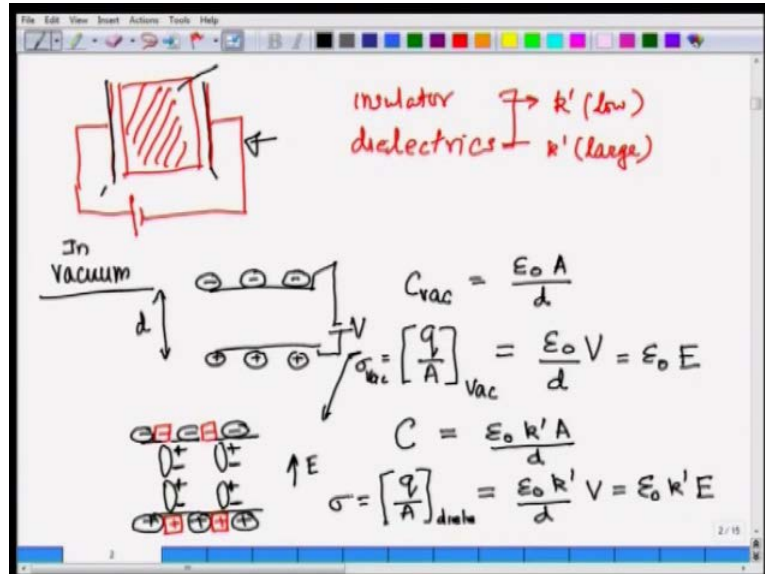 File Edit View Insert Actions Tools Help
insulator → k' (low)
dielectrics k' (large)
In
Vacuum
d
V
C_vac = ε₀ A / d
σ_vac = [q / A]_Vac = ε₀ / d V = ε₀ E
E
C = ε₀ k' A / d
σ = [q / A]_diele = ε₀ k' / d V = ε₀ k' E
2 / 15
2